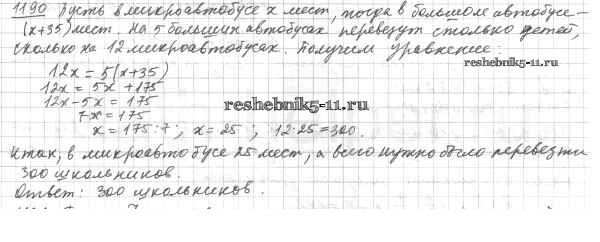 1190 Пусть в микроавтобусе x мест, тогда в большом автобусе –
(x+35) мест. На 5 больших автобусах перевезут столько детей,
сколько на 12 микроавтобусах. Получим уравнение:
12x = 5(x+35)
12x = 5x + 175
12x - 5x = 175
7x = 175
x = 175:7; x = 25, 12·25 = 300.
reshebnik5-11.ru
reshebnik5-11.ru
Итак, в микроавтобусе 25 мест, а всего нужно было перевезти
300 школьников.
Ответ: 300 школьников.